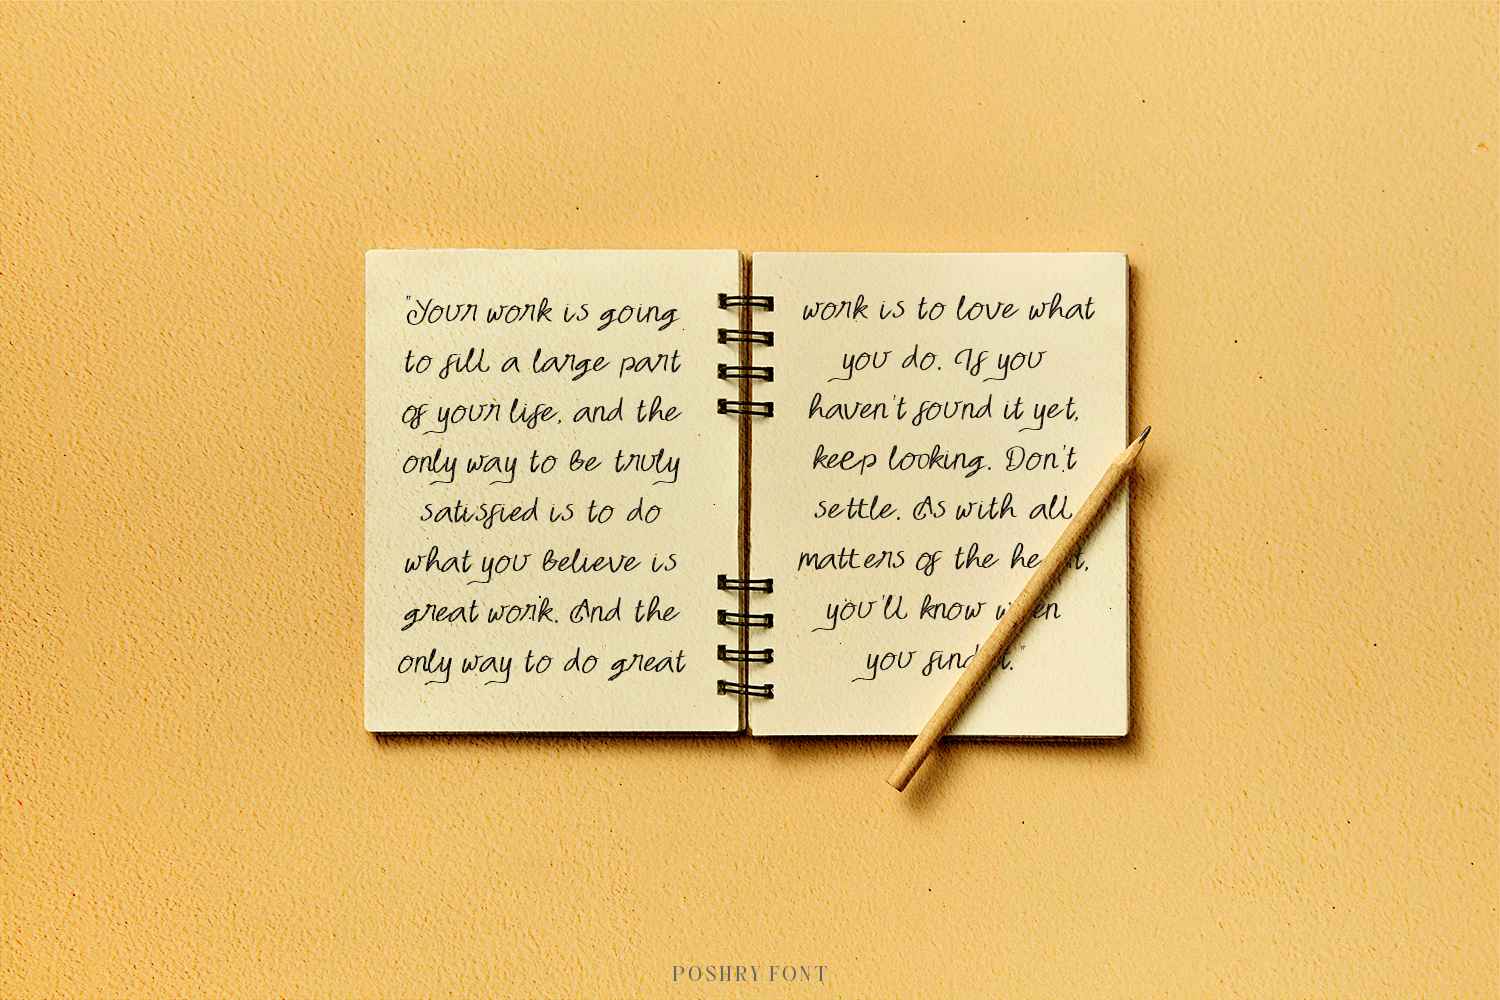 "Your work is going
to fill a large part
of your life, and the
only way to be truly
satisfied is to do
what you believe is
great work. And the
only way to do great
work is to love what
you do. If you
haven't found it yet,
keep looking. Don't
settle. As with all
matters of the heart,
you'll know when
you find it."
POSHRY FONT